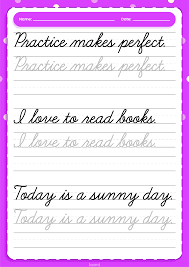 Name: Date:
Practice makes perfect.
Practice makes perfect.
I love to read books.
I love to read books.
Today is a sunny day.
Today is a sunny day.